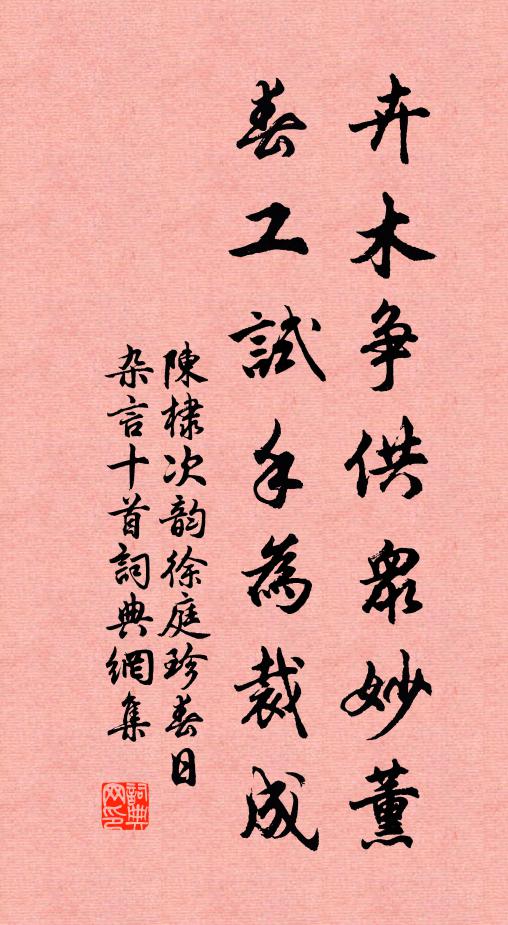 卉木争供衆妙薰
春工試手為裁成
陳棣次韵徐庭珍春日
杂言十首詞典網集
詞典网印